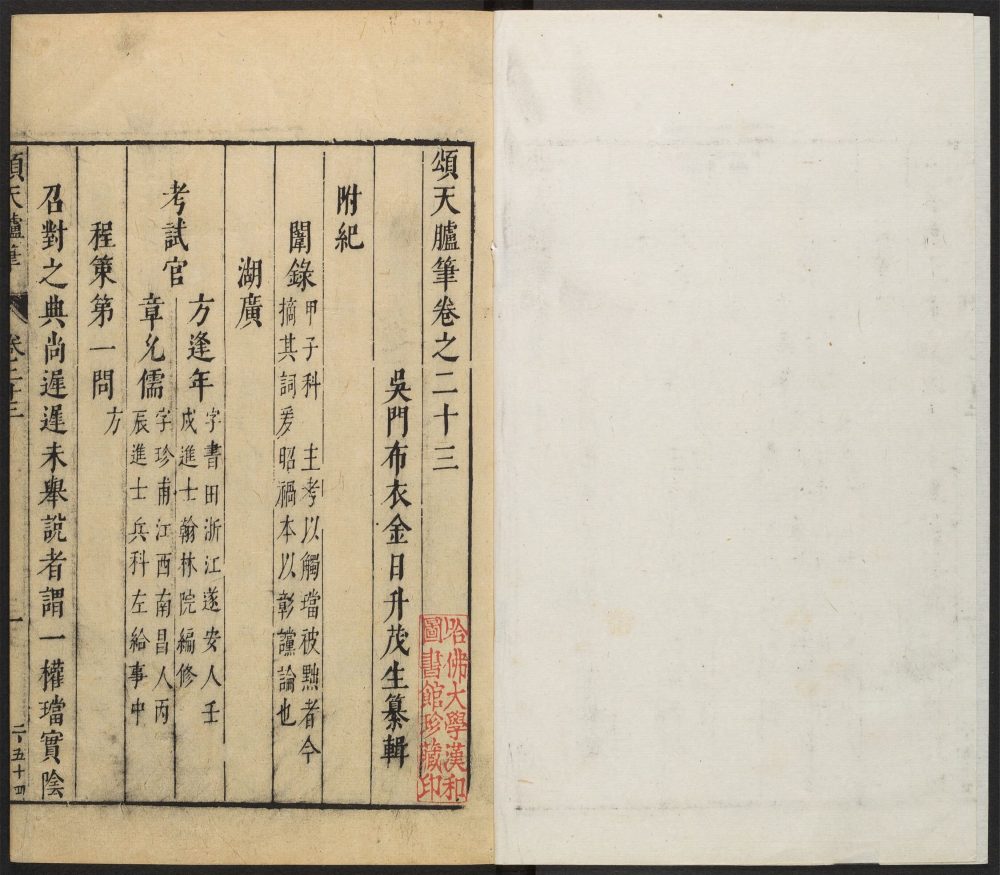 頌天臚筆卷之二十三
吳門布衣金日升茂生纂輯
附紀
闈錄甲子科 主考以觸璫被黜者今
摘其詞爰昭禍本以彰讜論也
湖廣
考試官
方逢年字書田浙江遂安人壬
戌進士翰林院編修
章允儒字珍甫江西南昌人丙
辰進士兵科左給事中
程策第一問方
召對之典尚遲遲未舉說者謂一權璫實陰
頌天臚筆 卷二十三 一 二百五十四
哈佛大學漢和
圖書館珍藏印